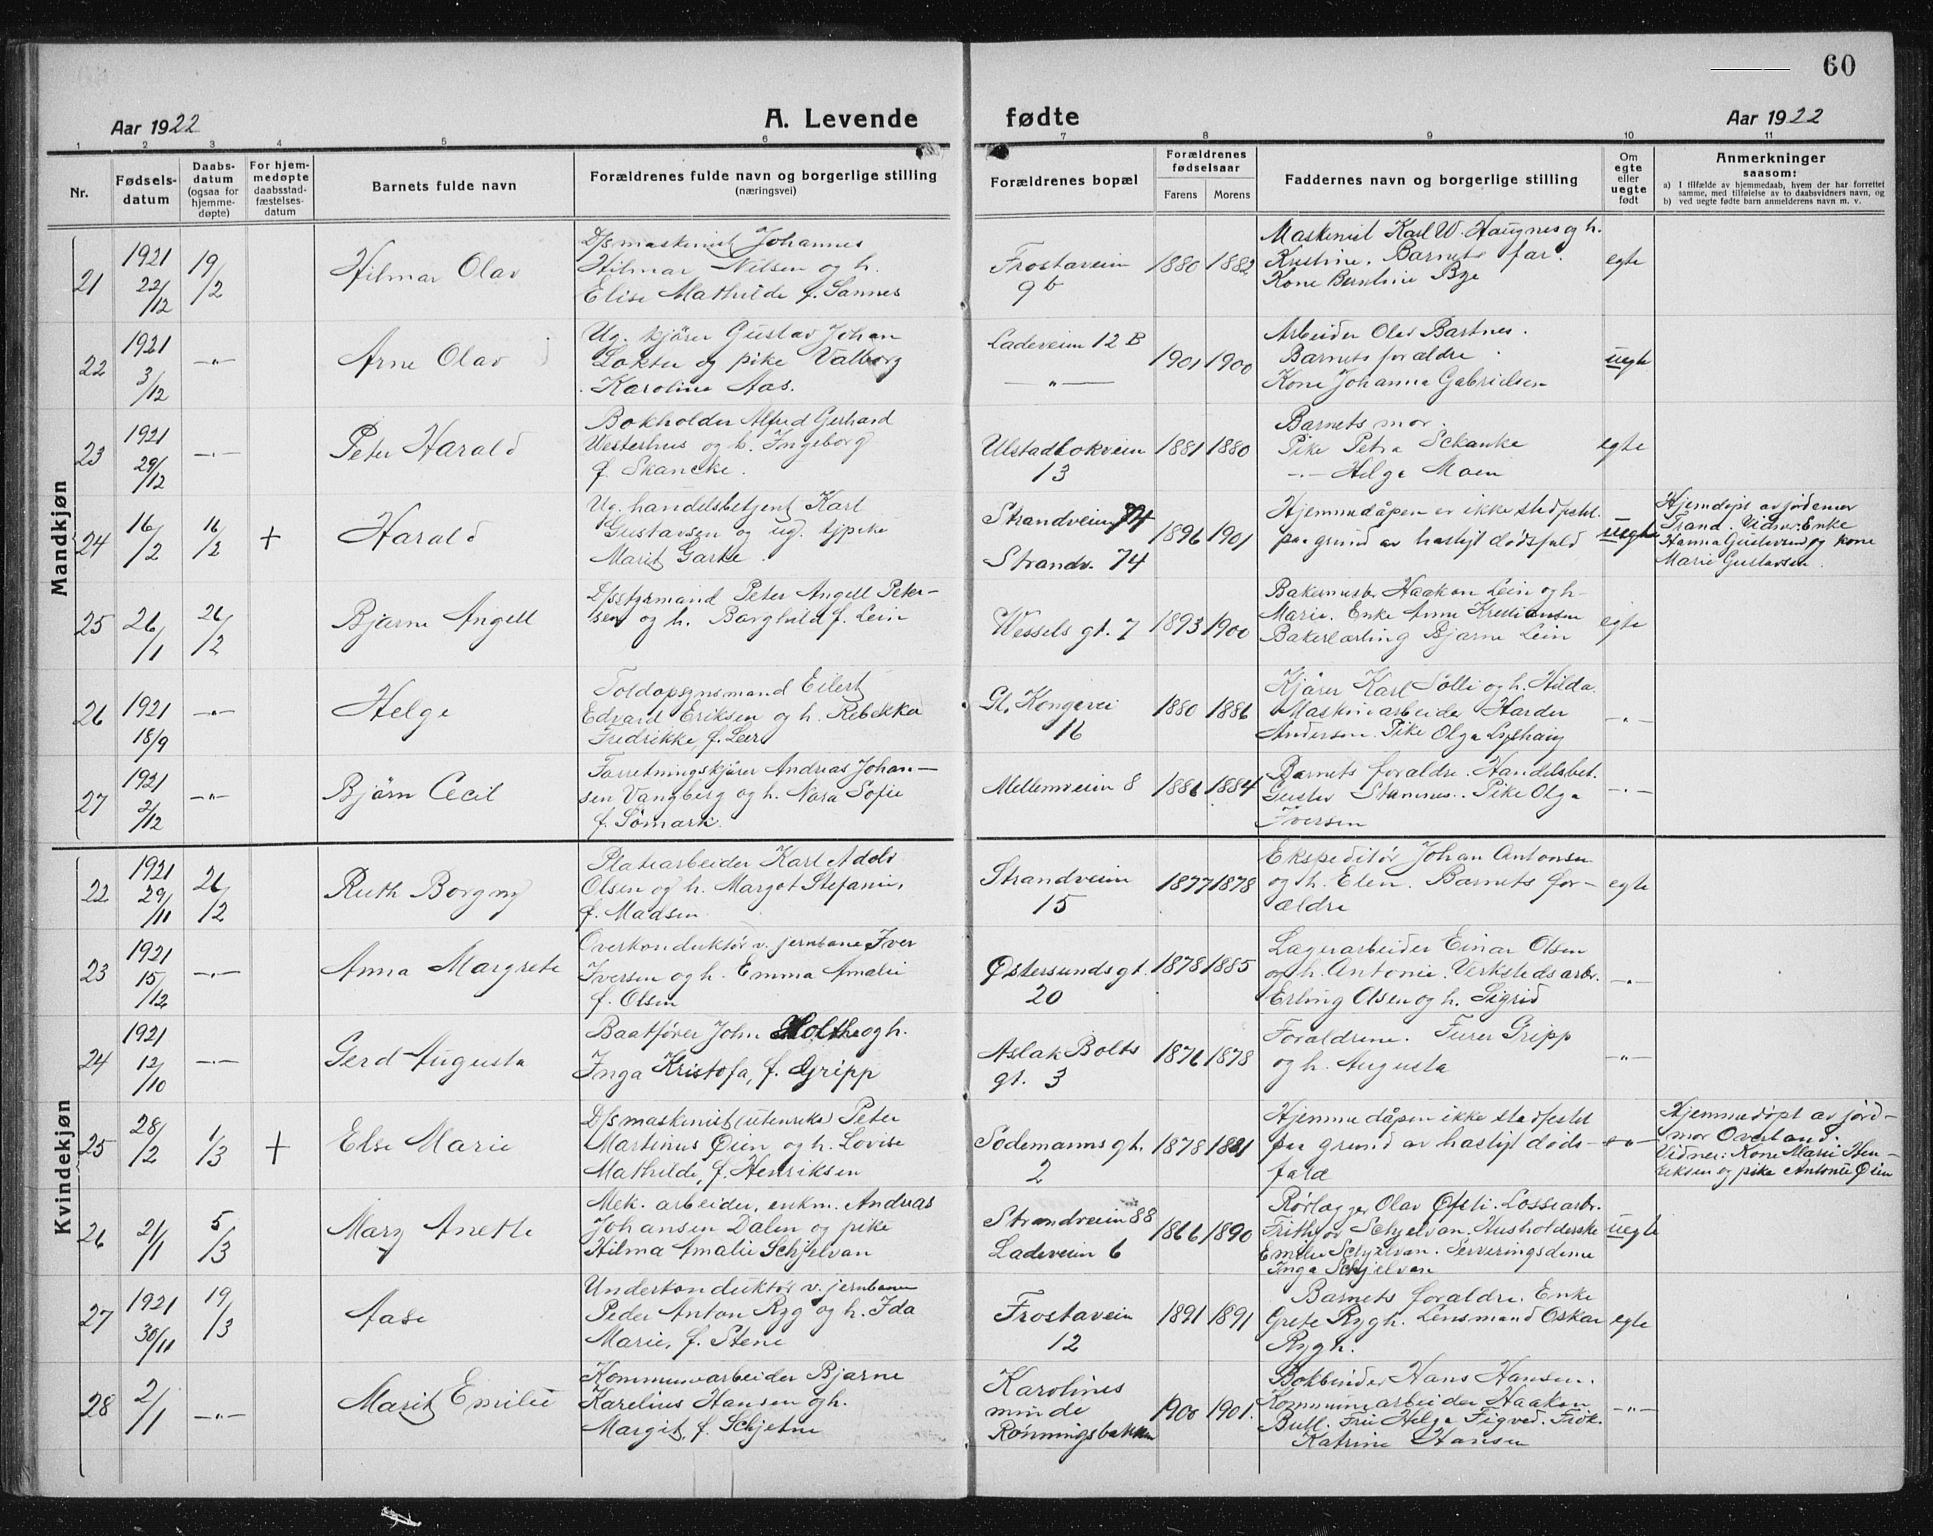 60
Aar 1922
A. Levende
fødte
Aar 1922
1 2 3 4 5 6 7 8 9 10 11
Nr.
Fødsels-
datum
Daabs-
datum
(ogsaa for
hjemme-
døpte)
For hjem-
medøpte
daabsstad-
fæstelses-
datum
Barnets fulde navn
Forældrenes fulde navn og borgerlige stilling
(næringsvei)
Forældrenes bopæl
Forældrenes
fødselsaar
Farens Morens
Faddernes navn og borgerlige stilling
Om
egte
eller
uegte
født
Anmerkninger
saasom:
a) I tilfælde av hjemmedaab, hvem der har forrettet
samme, med tilføielse av to daabsvidners navn, og
b) ved uegte fødte barn anmelderens navn m. v.
Mandkjøn
21
1921
22/12
19/2
Hilmar Olav
D/s maskinist Johannes
Hilmar Nilsen og h.
Elise Mathilde f. Sannes
Frostaveien
9b
1880 1882
Maskinist Karl W. Haugnes og h.
Kristine. Barnets far.
Kone Berntine Bye
egte
22
1921
3/12
—„—
Arne Olav
Ug. kjører Gustav Johan
Lokter og pike Valborg
Karoline Aas.
Ladeveien 12 B
—„—
1901 1900
Arbeider Olav Bartnes.
Barnets forældre
Kone Johanna Gabrielsen
uegte
23
1921
29/12
—„—
Peter Harald
Bokholder Alfred Gerhard
Westerhus og h. Ingeborg
f. Skancke.
Ulstadløkveien
13
1881 1880
Barnets mor.
Pike Petra Schanke
—„— Helga Moen
egte
24
16/2
16/2
+
Harald
Ug. handelsbetjent Karl
Gustavsen og ug. tjpike
Marit Garke.
Strandveien 74
Strandv. 74
1896 1901
Hjemmedåpen er ikke stadfestet
paa grund av hastigt dødsfald
uegte
Hjemdøpt av jordmor
Trand. Vidner: Enke
Hanna Gustavsen og kone
Marie Gustavsen.
25
26/1
26/2
Bjarne Angell
D/s styrmand Peter Angell Peter-
sen og h. Borghild f. Lein
Wessels gt. 7
1893 1900
Bakermester Haakon Lein og h.
Marie. Enke Anne Kristiansen
Bakerlærling Bjarne Lein
egte
26
1921
18/9
—„—
Helge
Toldopsynsmand Eilert
Edvard Eriksen og h. Rebekka
Fredrikke, f. Leer
Gl. Kongevei
16
1880 1886
Kjører Karl Solli og h. Hilda.
Maskinarbeider Harder
Andersen. Pike Olga Lyshaug
—„—
27
1921
2/12
—„—
Bjørn Cecil
Forretningskjører Andreas Johan-
sen Vangberg og h. Nora Sofie
f. Sømark.
Mellemveien 8
1886 1884
Barnets forældre. Handelsbet.
Gustav Stamnes. Pike Olga
Iversen
—„—
Kvindekjøn
22
1921
29/11
26/2
Ruth Borgny
Platearbeider Karl Adolf
Olsen og h. Margot Stefanie,
f. Madsen
Strandveien
15
1877 1878
Ekspeditør Johan Antonsen
og h. Elen. Barnets for-
ældre
egte
23
1921
15/12
—„—
Anna Margrete
Overkonduktør v. jernbane Iver
Iversen og h. Emma Amalie
f. Olsen
Østersunds gt.
20
1878 1885
Lagerarbeider Einar Olsen
og h. Antonie. Verkstedsarb.
Erling Olsen og h. Sigrid
—„—
24
1921
12/10
—„—
Gerd Augusta
Baatfører John Holthe og h.
Inga Kristofa, f. Gripp
Aslak Bolts
gt. 3
1876 1878
Forældrene. Furer Gripp
og h. Augusta
—„—
25
28/2
1/3
+
Else Marie
D/s maskinist (utenriks) Peter
Martinus Øien og h. Lovise
Mathilde, f. Henriksen
Sodemanns gt.
2
1878 1881
Hjemmedåpen ikke stadfestet
paa grund av hastigt døds-
fald
—„—
Hjemmedøpt av jord-
mor Overland.
Vidner: Kone Marie Hen-
riksen og pike Antonie Øien
26
21/1
5/3
Mary Anette
Mek. arbeider, enkm. Andreas
Johansen Dalen og pike
Hilma Amalie Schjelvan
Strandveien 88
Ladeveien 6
1866 1890
Rørlægger Olav Øfsti. Lossearb.
Frithjov Schjelvan. Husholderske
Emilie Schjelvan. Serveringsdame
Inga Schjelvan
uegte
27
1921
30/11
19/3
Aase
Underkonduktør v. jernbanen
Peder Anton Ryg og h. Ida
Marie, f. Stene
Frostaveien
12
1891 1891
Barnets forældre. Enke
Grete Rygh. Lensmand Oskar
Rygh.
egte
28
2/1
—„—
Marit Emilie
Kommunearbeider Bjarne
Karelius Hansen og h.
Margit, f. Schjetne
Karolines
minde
Rønningsbakken
1900 1901.
Bokbinder Hans Hansen.
Kommunearbeider Haakon
Bull. Fru Helga Figved. Frøk.
Katrine Hansen
—„—